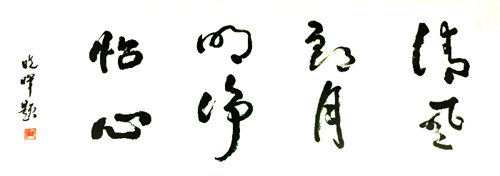 清风
朗月
明净
怡心
晓晖题